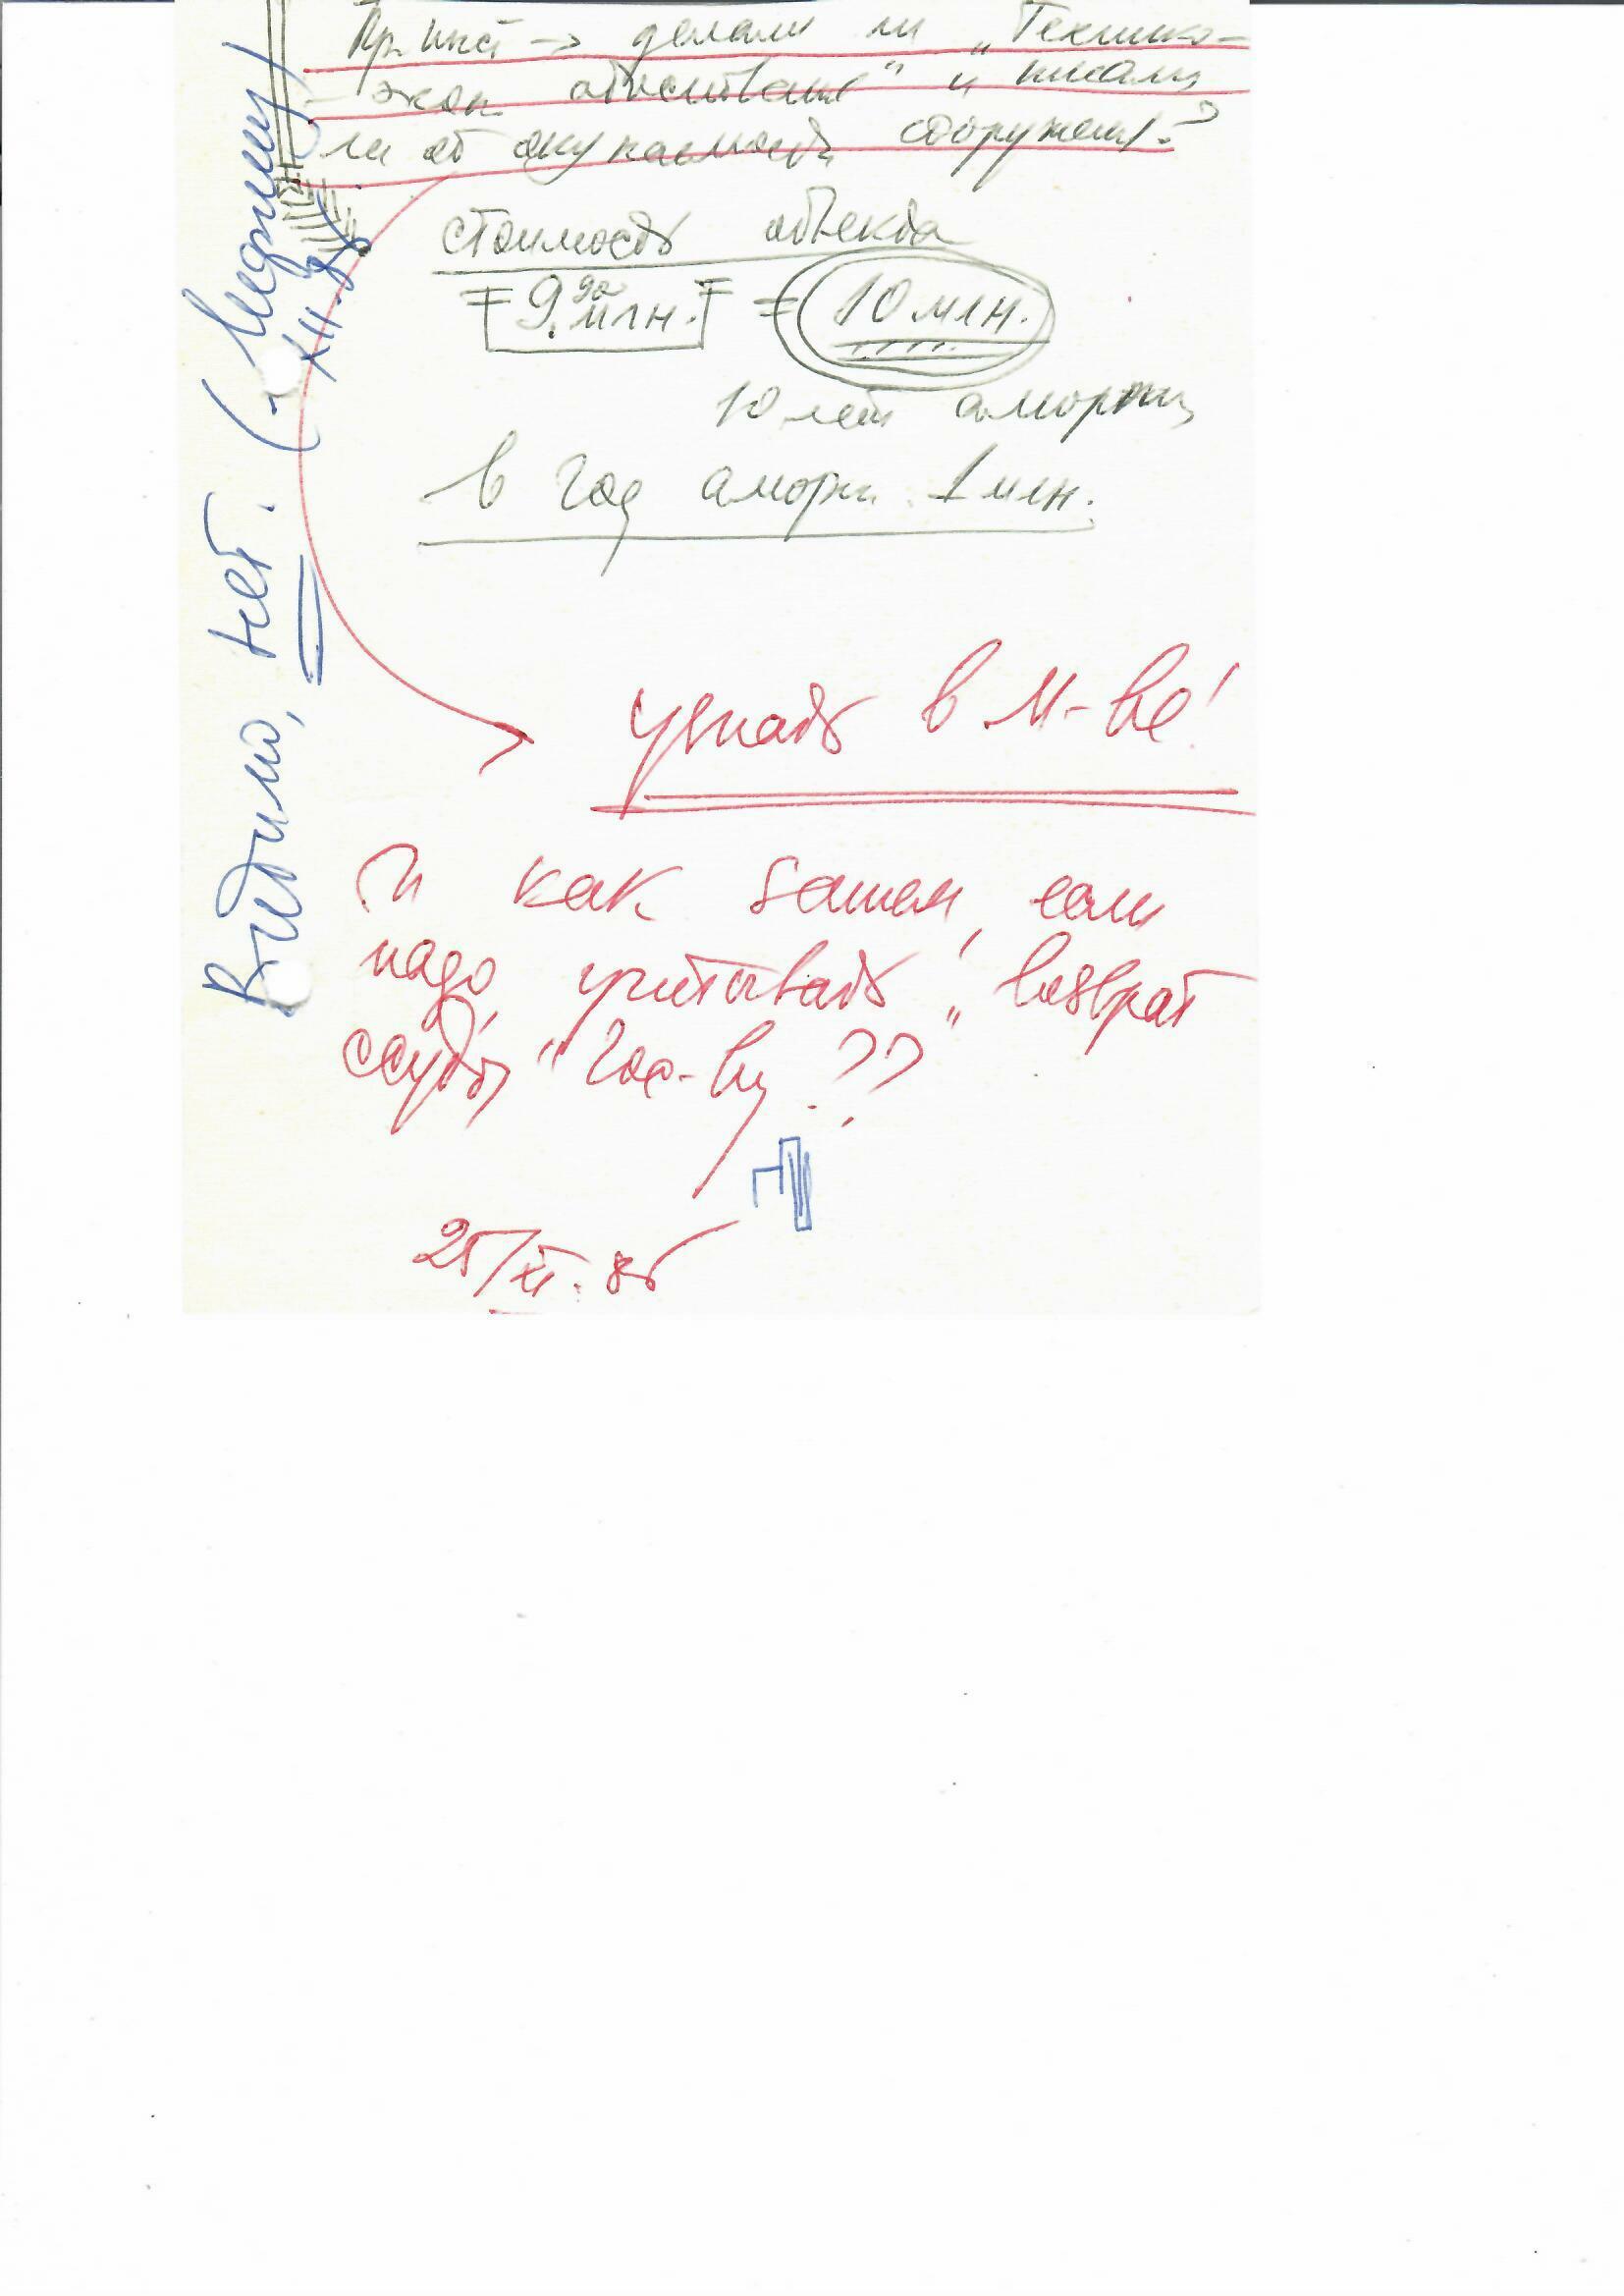 Пр. инст → делали ли „Технико-
- экон. обоснования" и писали
ли об окупаемости сооружен.?
стоимость объекта
9.92 млн. = 10 млн.
10 лет аморт.
в год аморт. 1 млн.
узнать в М-ве!
И как затем, если
надо, учитывать „возврат
ссуды" гос-ву??
25/XI.86
Видимо, нет.
XII.86